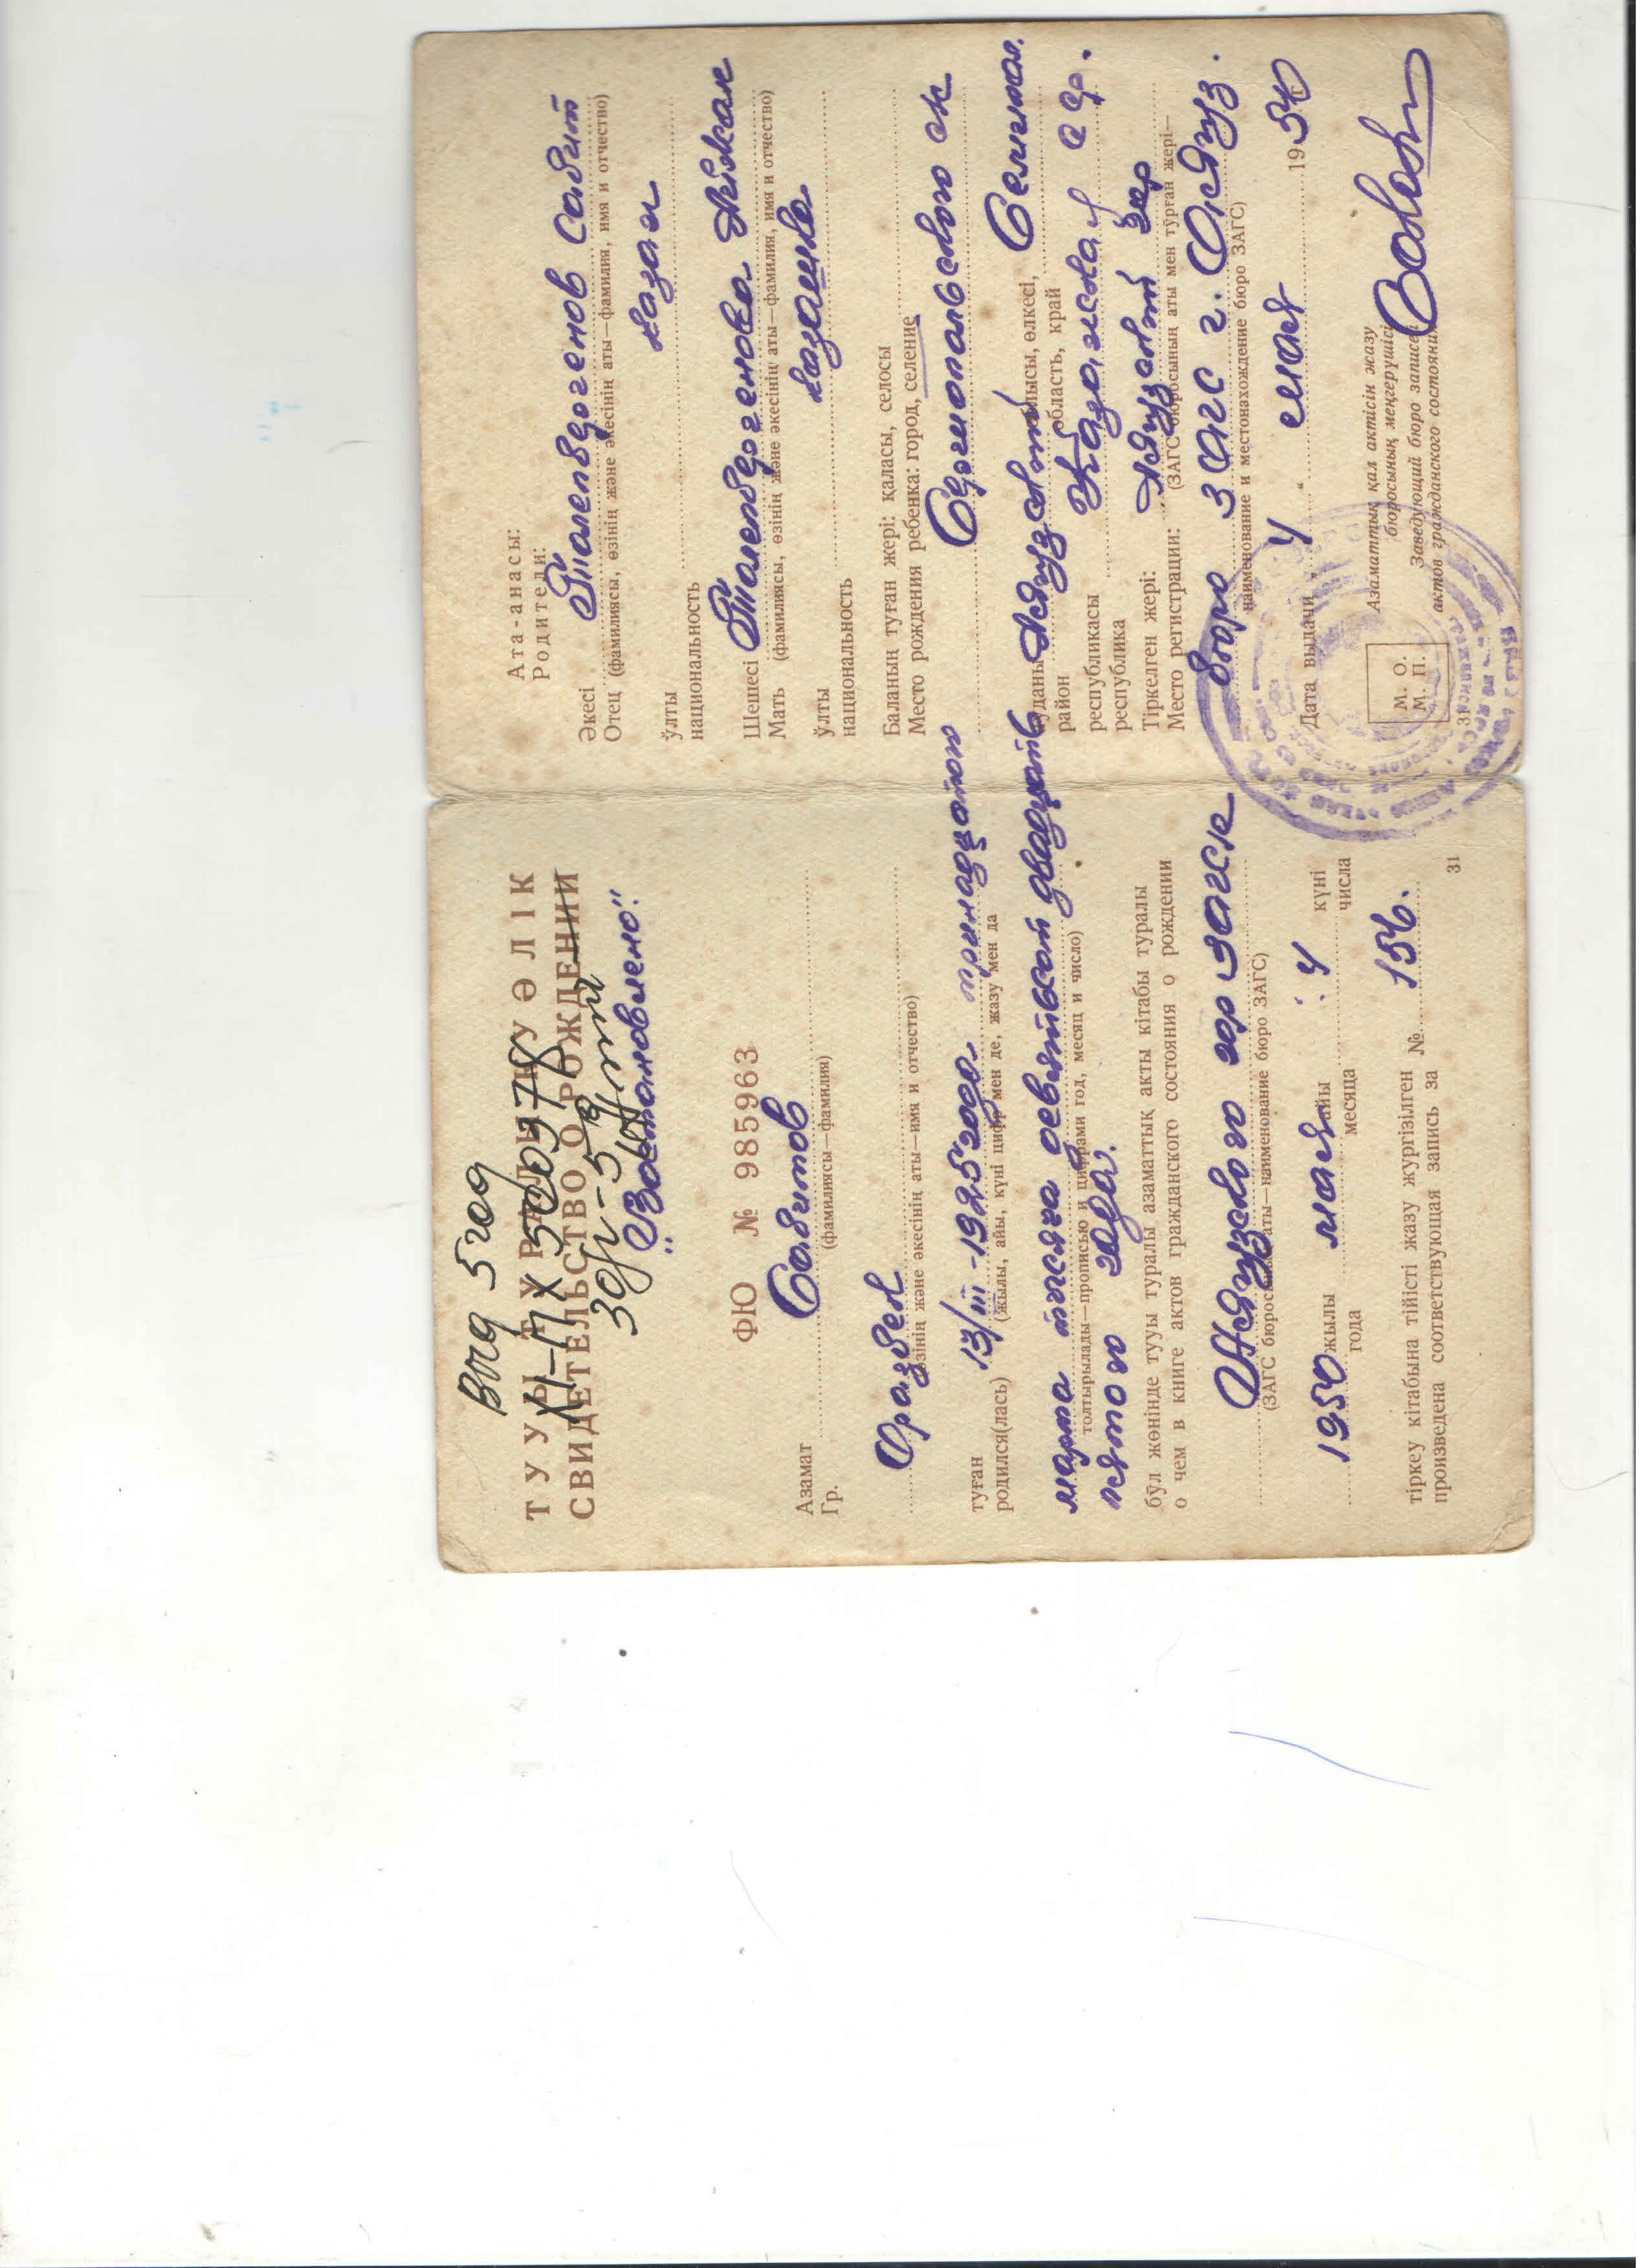 Выд 5 год
ТУУЫ ТУРАЛЫ КУӘЛІК
СВИДЕТЕЛЬСТВО О РОЖДЕНИИ
„Востановлено“.
ФЮ № 985963
Азамат
Гр. Сабитов
(фамилиясы—фамилия)
Оразбек
(өзінің және әкесінің аты—имя и отчество)
туған
родился(лась) 13/III-1925 года тринадцатого
(жылы, айы, күні цифр мен де, жазу мен да
марта тысяча девятьсот двадцать
толтырылады—прописью и цифрами год, месяц и число)
пятого года.
бұл жөнінде тууы туралы азаматтық акты кітабы туралы
о чем в книге актов гражданского состояния о рождении
Аягузского гор загсе
(ЗАГС бюросының аты—наименование бюро ЗАГС)
1950 жылы мая айы 4 күні
года месяца числа
тіркеу кітабына тійісті жазу жүргізілген
произведена соответствующая запись за № 156.
31
Ата-анасы:
Родители:
Әкесі
Отец Таленбергенов Сабит
(фамилиясы, өзінің және әкесінің аты—фамилия, имя и отчество)
ұлты казак
национальность
Шешесі Таленбергенова
Мать (фамилиясы, өзінің және әкесінің аты—фамилия, имя и отчество)
ұлты казашка
национальность
Баланың туған жері: қаласы, селосы
Место рождения ребенка: город, селение
Сергиопольского
ауданы Аягузский облысы, өлкесі,
район область, край
республикасы Казахская ССР.
республика
Тіркелген жері:
Место регистрации: Аягузский гор
(ЗАГС бюросының аты мен тұрған жері—
бюро ЗАГС г. Аягуз.
наименование и местонахождение бюро ЗАГС)
Дата выдачи „4“ мая 1950 г.
М. О.
М. П.
Азаматтық қал актісін жазу
бюросының меңгерушісі
Заведующий бюро записей
актов гражданского состояния
31